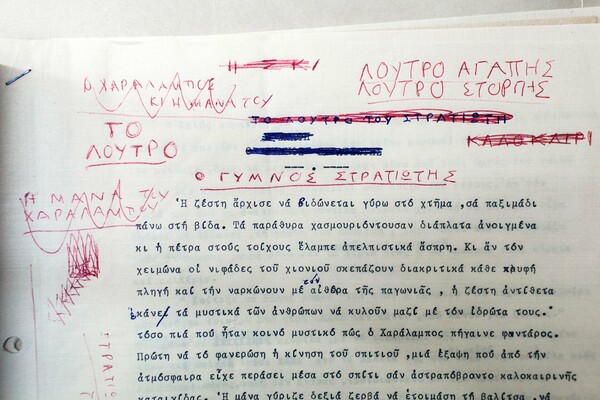 Ο ΧΑΡΑΛΑΜΠΟΣ
ΚΙ Η ΜΑΝΑ ΤΟΥ
ΛΟΥΤΡΟ ΑΓΑΠΗΣ
ΛΟΥΤΡΟ ΣΤΟΡΓΗΣ
ΤΟ ΛΟΥΤΡΟ ΤΟΥ ΣΤΡΑΤΙΩΤΗ
ΚΑΛΟΚΑΙΡΙ
ΤΟ
ΛΟΥΤΡΟ
Ο ΓΥΜΝΟΣ ΣΤΡΑΤΙΩΤΗΣ
Η ΜΑΝΑ ΤΟΥ
ΧΑΡΑΛΑΜΠΟΥ
Ἡ ζέστη ἄρχισε νά βιδώνεται γύρω στό χτῆμα ,σά παξιμάδι
πάνω στή βίδα. Τά παράθυρα χασμουριόντουσαν διάπλατα ἀνοιγμένα
κι ἡ πέτρα στούς τοίχους ἔλαμπε ἀπελπιστικά ἄσπρη. Κι ἄν τόν
χειμῶνα οἱ νιφάδες τοῦ χιονιοῦ σκεπάζουν διακριτικά κάθε κρυφή
πληγή καί τήν ναρκώνουν μέ τόν αἰθέρα τῆς παγωνιᾶς , ἡ ζέστη ἀντίθετα
κάνει τά μυστικά τῶν ἀνθρώπων νά κυλοῦν μαζί μέ τόν ἱδρῶτα τους.
τόσο πιά πού ἦταν κοινό μυστικό πώς ὁ Χαράλαμπος πήγαινε φαντάρος.
Πρώτη νά τό φανερώση ἡ κίνηση τοῦ σπιτιοῦ ,μιά ἔξαψη πού ἀπό τήν
ἀτμόσφαιρα εἶχε περάσει μέσα στό σπίτι σάν ἀστραπόβροντο καλοκαιρινῆς
καταιγίδας. Ἡ μάνα γύριζε δεξιά ζερβά νά ἑτοιμάση τή βαλίτσα ,νά
ΣΤΡΑΤΙΩ